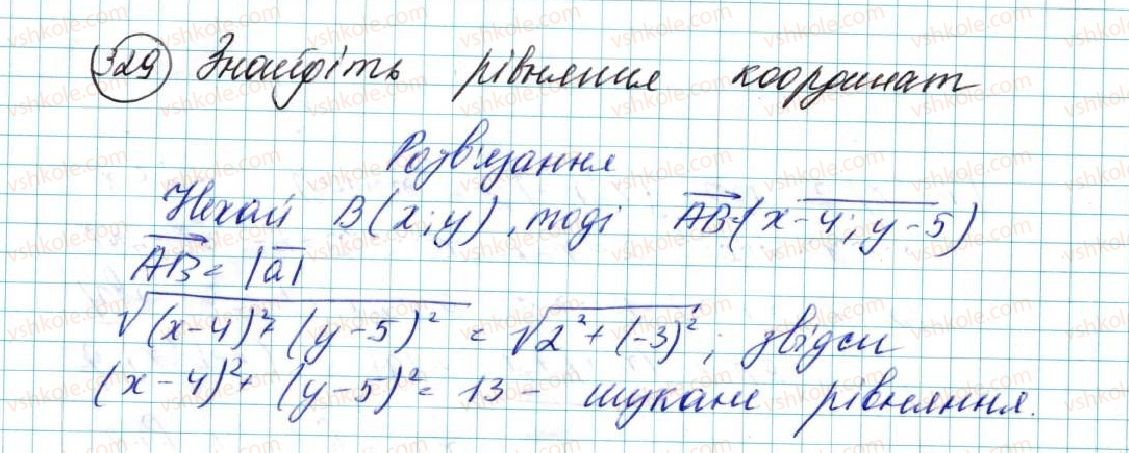 329 Знайдіть рівняння координат
Розв'язання
Нехай B(x;y), тоді AB(x-4; y-5)
AB = |a|
√(x-4)²+(y-5)² = √2²+(-3)²; звідси
(x-4)²+(y-5)² = 13 - шукане рівняння.